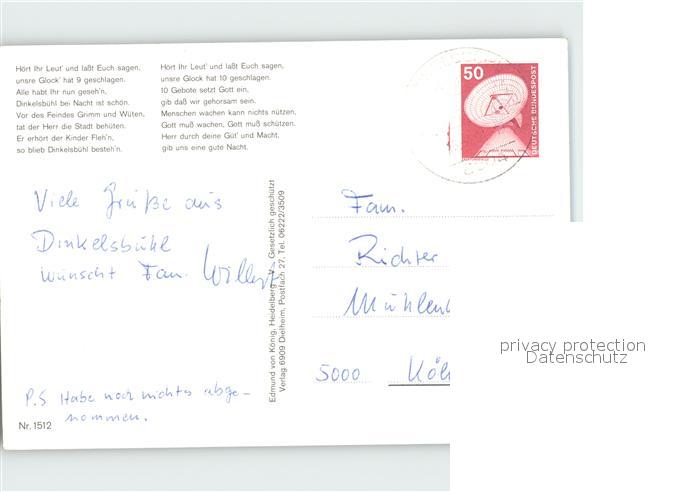 Hört Ihr Leut' und laßt Euch sagen,
unsre Glock' hat 9 geschlagen.
Alle habt Ihr nun geseh'n,
Dinkelsbühl bei Nacht ist schön.
Vor des Feindes Grimm und Wüten,
tat der Herr die Stadt behüten.
Er erhört der Kinder Fleh'n,
so blieb Dinkelsbühl besteh'n.
Hört Ihr Leut' und laßt Euch sagen,
unsre Glock' hat 10 geschlagen.
10 Gebote setzt Gott ein,
gib daß wir gehorsam sein.
Menschen wachen kann nichts nützen,
Gott muß wachen, Gott muß schützen.
Herr durch deine Güt' und Macht,
gib uns eine gute Nacht.
50
DEUTSCHE BUNDESPOST
Viele Grüße aus
Dinkelsbühl
wünscht Fam. Willert
P.S Habe noch nichts abge-
nommen.
Nr. 1512
Edmund von König, Heidelberg - Gesetzlich geschützt
Verlag 6909 Dielheim, Postfach 27, Tel. 06222/3509
Fam.
Richter
Mühlen
5000 Köl
privacy protection
Datenschutz